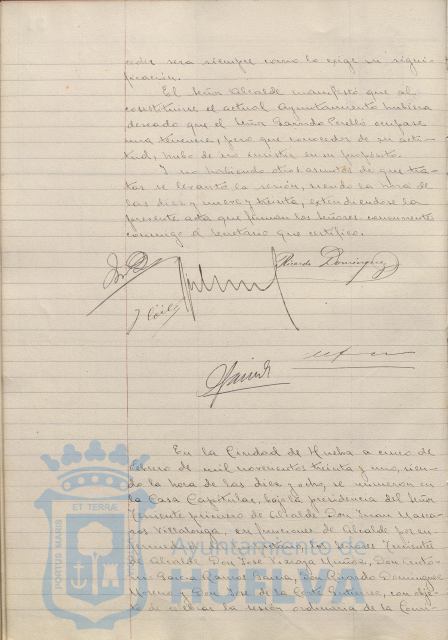 ceder sera siempre como lo exige su signi-
ficación.
El Señor Alcalde manifestó que al
constituirse el actual Ayuntamiento hubiera
deseado que el Señor Garrido Perelló ocupase
una tenencia, pero que conocedor de su acti-
tud, hubo de no insistir en su propósito.
Y no habiendo otros asuntos de que tra-
tar se levantó la sesión, siendo la hora de
las diez y nueve y treinta, extendiendose la
presente acta que firman los Señores concurrentes
conmigo el Secretario que certifico.
Ricardo Dominguez
En la Ciudad de Huelva a cinco de
Febrero de mil novecientos treinta y uno, sien-
do la hora de las diez y ocho, se reunieron en
la Casa Capitular, bajo la presidencia del Señor
Teniente primero de Alcalde Don Juan
Villalonga, en funciones de Alcalde por en-
Tenientes
de Alcalde Don José Vizcaya Muñoz, Don
Garcia Ramos Don Ricardo Dominguez
Moreno y Don José de la Corte Gutierrez, con obje-
to de celebrar la sesión ordinaria de la Comi-
PORTUS MARIS
ET TERRÆ
Ayuntamiento de
HUELVA